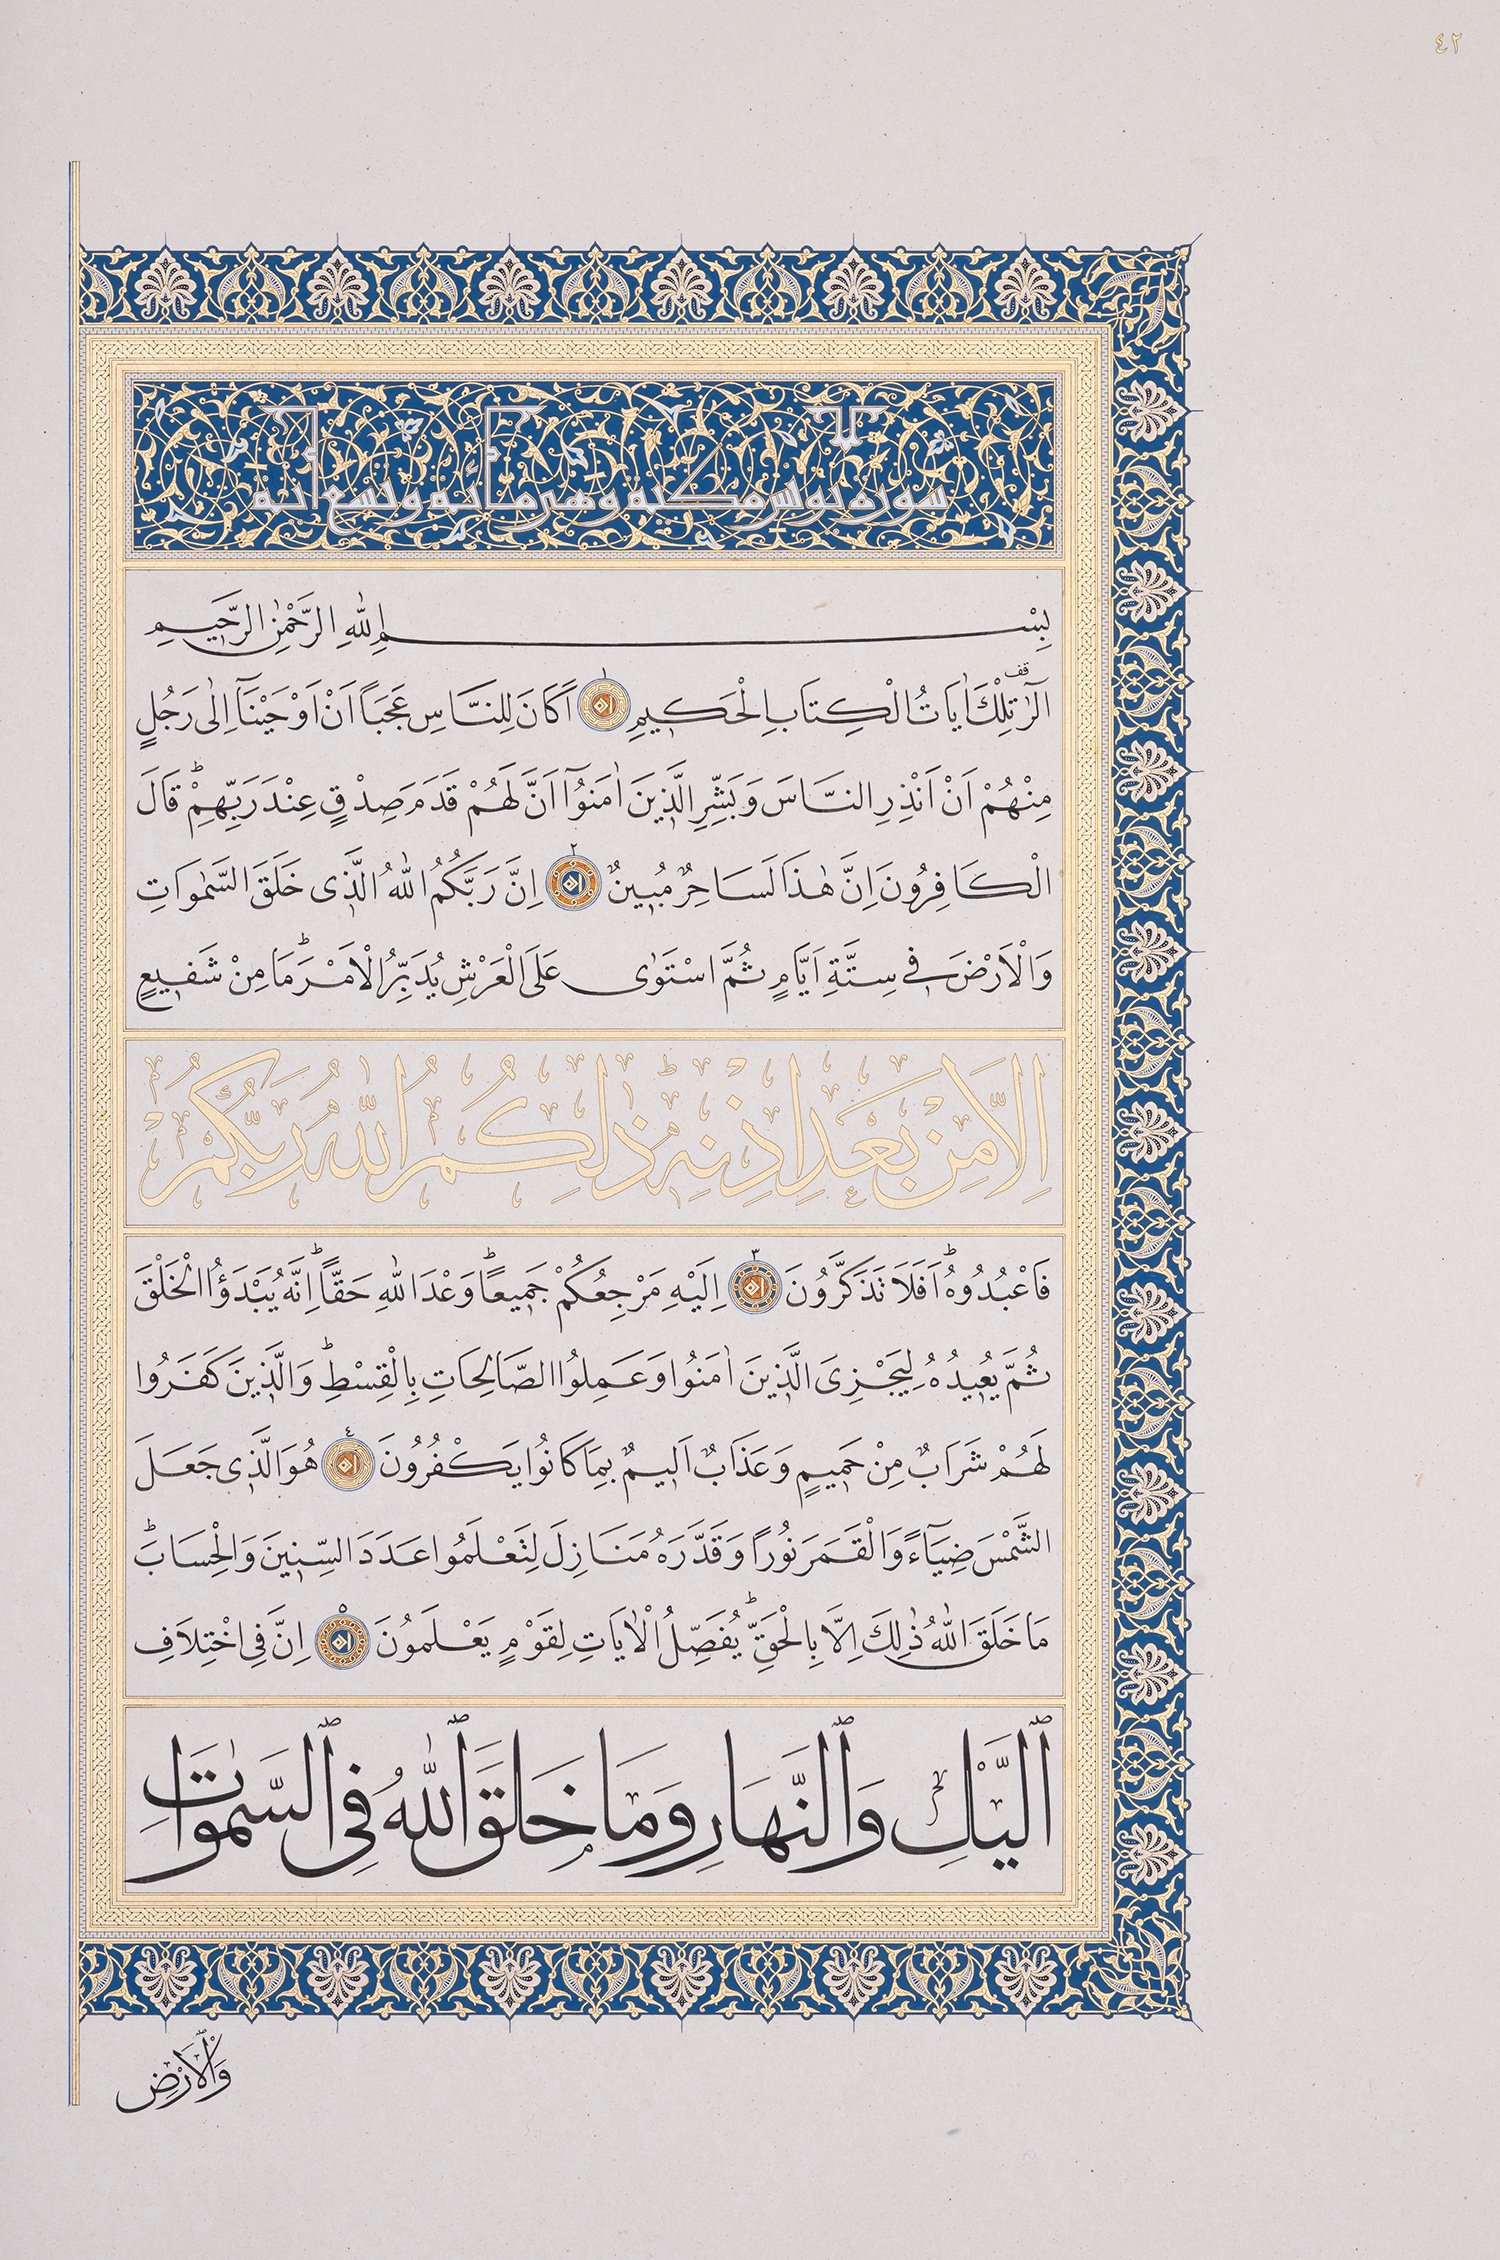 ٤٢
سورة يونس مكية وهي مائة وتسع آية
بِسْمِ اللّٰهِ الرَّحْمٰنِ الرَّحِيمِ
الٓرٰ قف تِلْكَ اٰيَاتُ الْكِتَابِ الْحَكِيمِ ١ اَكَانَ لِلنَّاسِ عَجَبًا اَنْ اَوْحَيْنَٓا اِلٰى رَجُلٍ
مِنْهُمْ اَنْ اَنْذِرِ النَّاسَ وَبَشِّرِ الَّذِينَ اٰمَنُٓوا اَنَّ لَهُمْ قَدَمَ صِدْقٍ عِنْدَ رَبِّهِمْ ۜ قَالَ
الْكَافِرُونَ اِنَّ هٰذَا لَسَاحِرٌ مُبِينٌ ٢ اِنَّ رَبَّكُمُ اللّٰهُ الَّذِى خَلَقَ السَّمٰوَاتِ
وَالْاَرْضَ فِى سِتَّةِ اَيَّامٍ ثُمَّ اسْتَوٰى عَلَى الْعَرْشِ يُدَبِّرُ الْاَمْرَ ۜ مَا مِنْ شَفِيعٍ
اِلَّا مِنْ بَعْدِ اِذْنِهِ ۜ ذٰلِكُمُ اللّٰهُ رَبُّكُمْ
فَاعْبُدُوهُ ۜ اَفَلَا تَذَكَّرُونَ ٣ اِلَيْهِ مَرْجِعُكُمْ جَمِيعًا ۜ وَعْدَ اللّٰهِ حَقًّا ۜ اِنَّهُ يَبْدَؤُا الْخَلْقَ
ثُمَّ يُعِيدُهُ لِيَجْزِىَ الَّذِينَ اٰمَنُوا وَعَمِلُوا الصَّالِحَاتِ بِالْقِسْطِ ۜ وَالَّذِينَ كَفَرُوا
لَهُمْ شَرَابٌ مِنْ حَمِيمٍ وَعَذَابٌ اَلِيمٌ بِمَا كَانُوا يَكْفُرُونَ ٤ هُوَ الَّذِى جَعَلَ
الشَّمْسَ ضِيَٓاءً وَالْقَمَرَ نُورًا وَقَدَّرَهُ مَنَازِلَ لِتَعْلَمُوا عَدَدَ السِّنِينَ وَالْحِسَابَ ۜ
مَا خَلَقَ اللّٰهُ ذٰلِكَ اِلَّا بِالْحَقِّ ۜ يُفَصِّلُ الْاٰيَاتِ لِقَوْمٍ يَعْلَمُونَ ٥ اِنَّ فِى اخْتِلَافِ
ٱلَّيْلِ وَٱلنَّهَارِ وَمَا خَلَقَ ٱللّٰهُ فِى ٱلسَّمٰوَاتِ
وَٱلْاَرْضِ